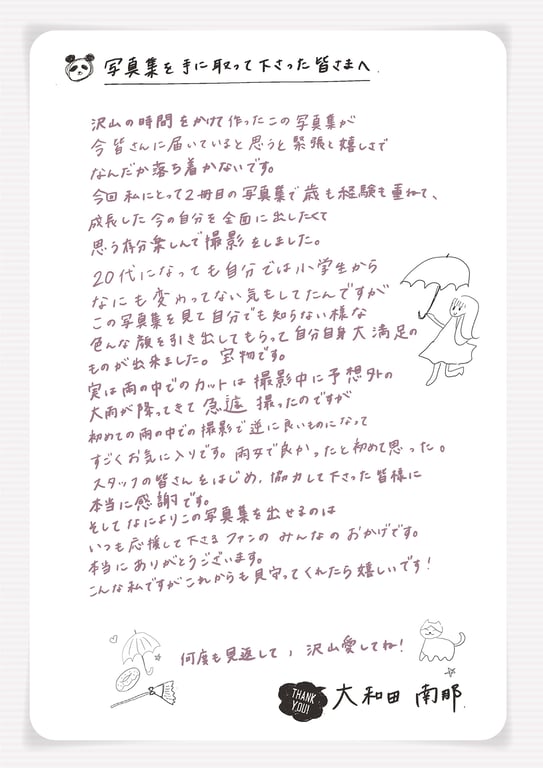 写真集を手に取って下さった皆さまへ
沢山の時間をかけて作ったこの写真集が
今皆さんに届いていると思うと緊張と嬉しさで
なんだか落ち着かないです。
今回私にとって2冊目の写真集で歳も経験も重ねて、
成長した今の自分を全面に出したくて
思う存分楽しんで撮影をしました。
20代になっても自分では小学生から
なにも変わってない気もしてたんですが
この写真集を見て自分でも知らない様な
色んな顔を引き出してもらって自分自身大満足の
ものが出来ました。宝物です。
実は雨の中でのカットは撮影中に予想外の
大雨が降ってきて急遽撮ったのですが
初めての雨の中での撮影で逆に良いものになって
すごくお気に入りです。雨女で良かったと初めて思った。
スタッフの皆さんをはじめ、協力して下さった皆様に
本当に感謝です。
そしてなによりこの写真集を出せるのは
いつも応援して下さるファンのみんなのおかげです。
本当にありがとうございます。
こんな私ですがこれからも見守ってくれたら嬉しいです!
何度も見返して、沢山愛してね!
THANK
YOU!
大和田 南那